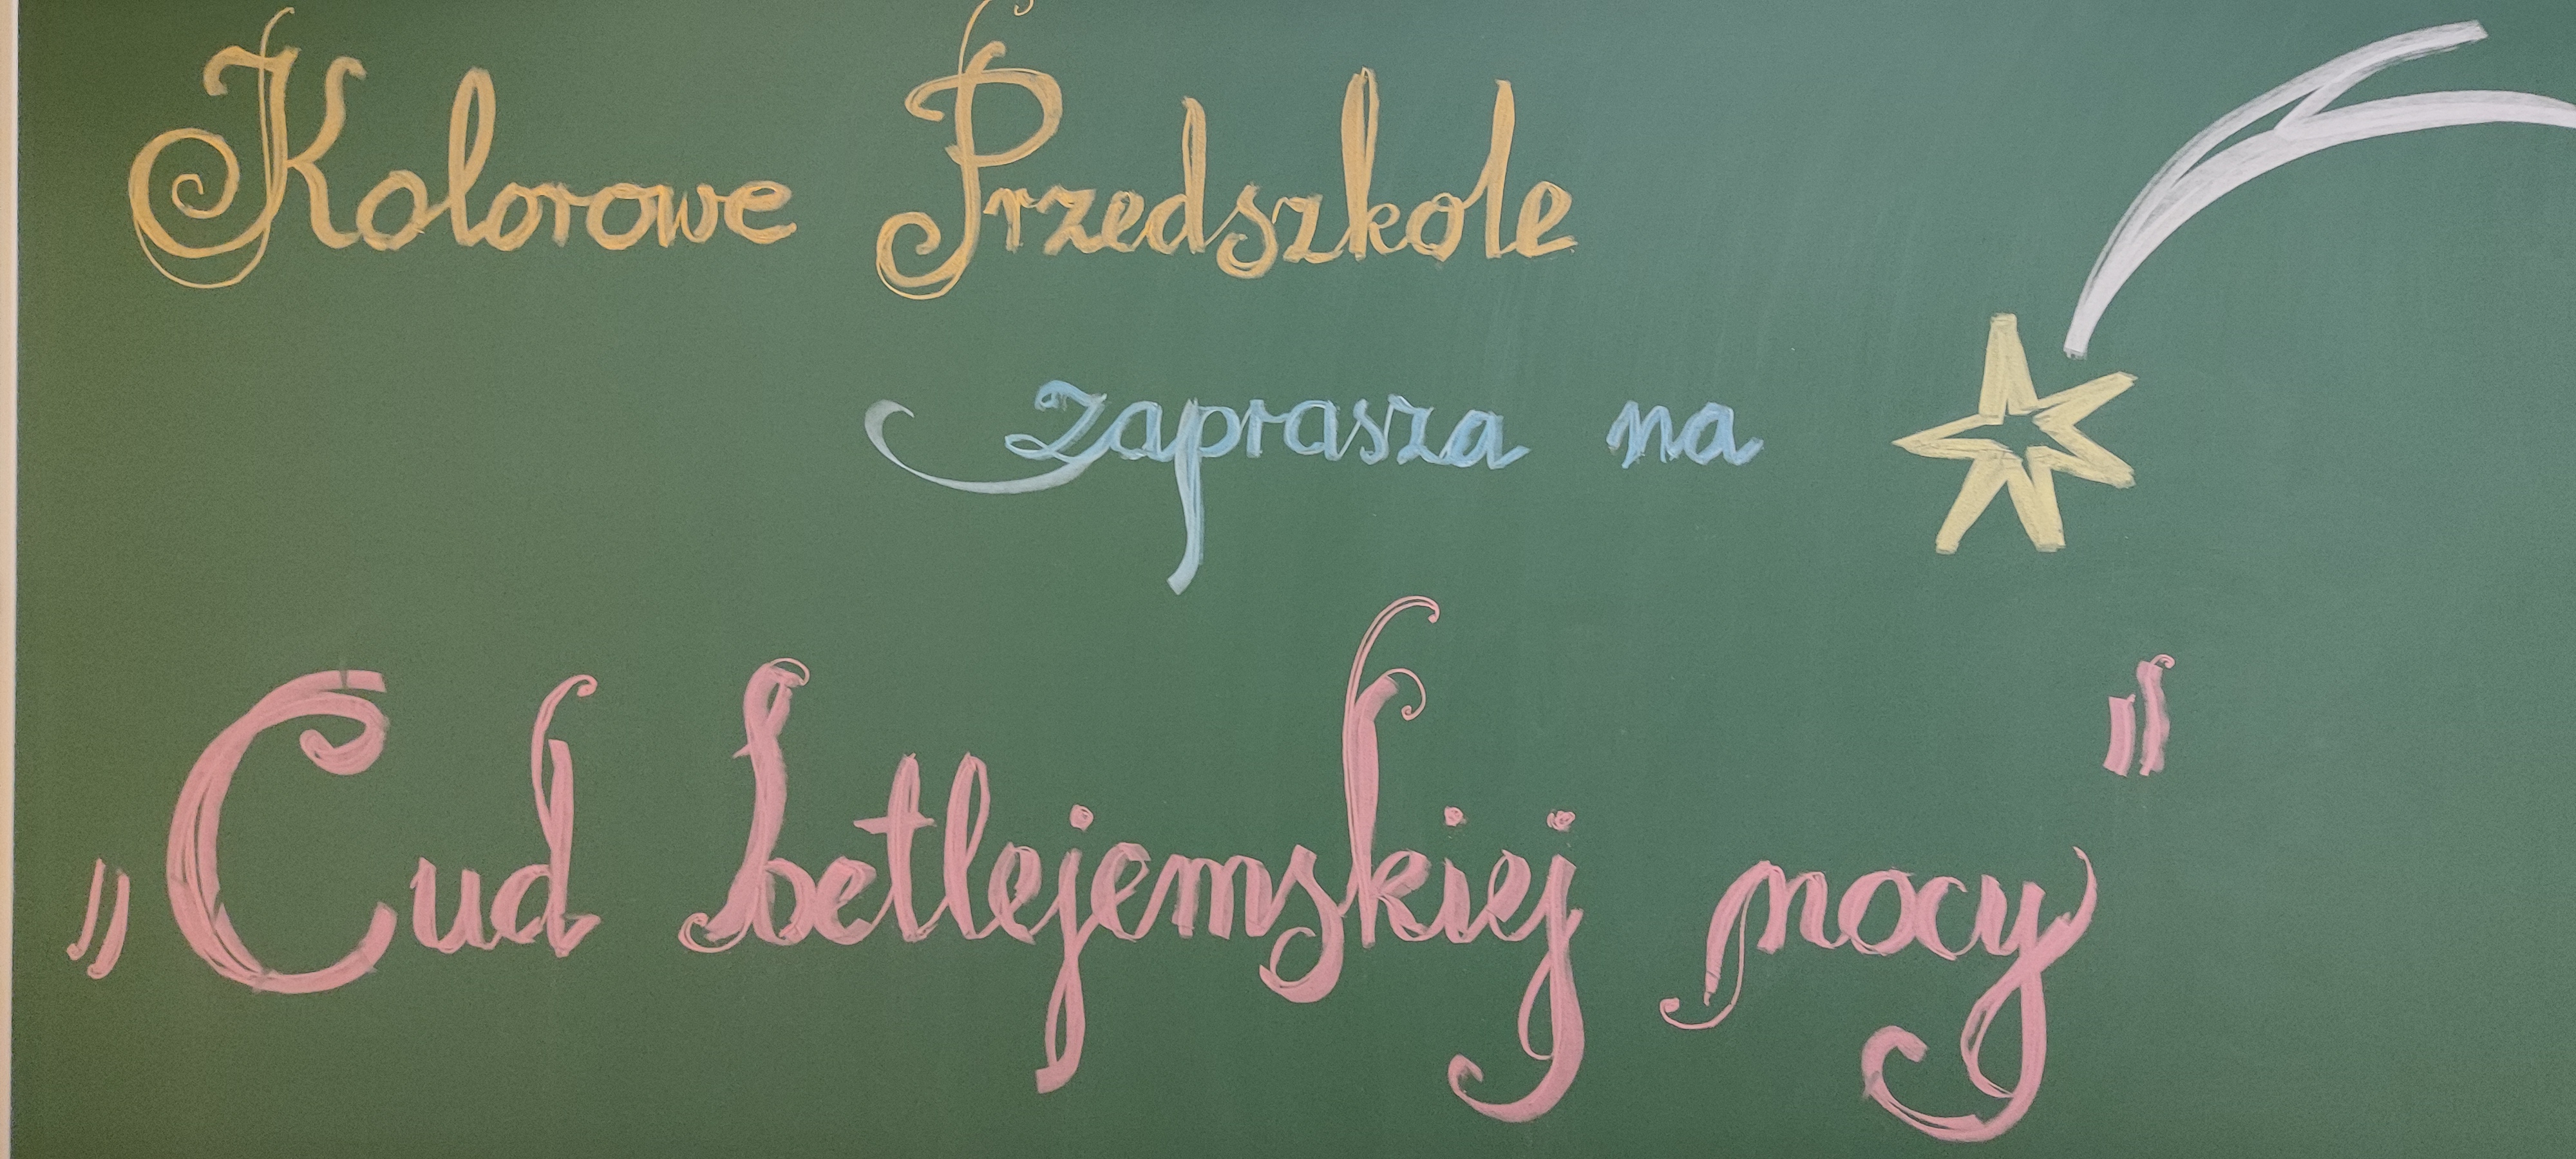 Kolorowe Przedszkole
zaprasza na
„Cud betlejemskiej nocy"